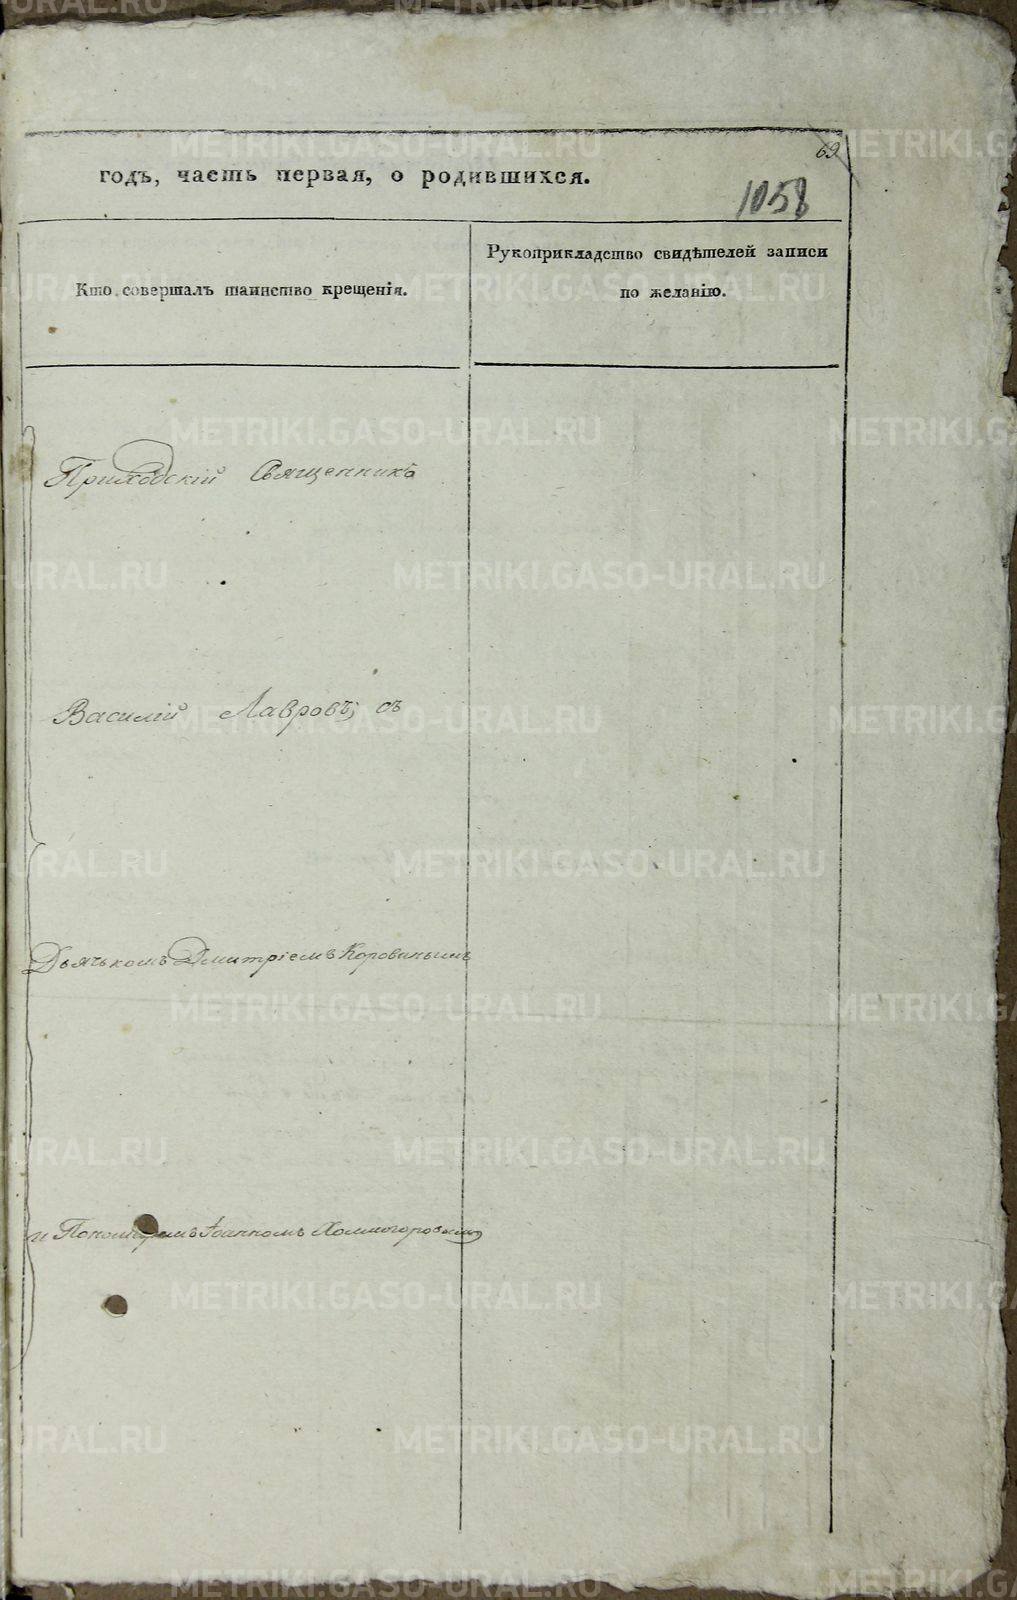 69
годъ, часть первая, о родившихся.
1058
Кто совершалъ таинство крещенія.
Рукоприкладство свидѣтелей записи
по желанію.
Приходскій Священникъ
Василій Лавровъ; съ
Дьячькомъ Дмитріемъ Коровинымъ
и Пономаремъ Іоанномъ Холмогоровымъ
METRIKI.GASO-URAL.RU